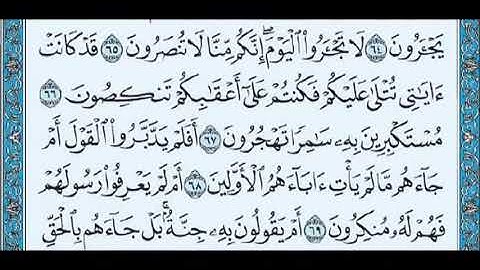 يَجْـَٔرُونَ ٦٤ لَا تَجْـَٔرُوا۟ ٱلْيَوْمَ ۖ إِنَّكُم مِّنَّا لَا تُنصَرُونَ ٦٥ قَدْ كَانَتْ
ءَايَـٰتِى تُتْلَىٰ عَلَيْكُمْ فَكُنتُمْ عَلَىٰٓ أَعْقَـٰبِكُمْ تَنكِصُونَ ٦٦
مُسْتَكْبِرِينَ بِهِۦ سَـٰمِرًا تَهْجُرُونَ ٦٧ أَفَلَمْ يَدَّبَّرُوا۟ ٱلْقَوْلَ أَمْ
جَآءَهُم مَّا لَمْ يَأْتِ ءَابَآءَهُمُ ٱلْأَوَّلِينَ ٦٨ أَمْ لَمْ يَعْرِفُوا۟ رَسُولَهُمْ
فَهُمْ لَهُۥ مُنكِرُونَ ٦٩ أَمْ يَقُولُونَ بِهِۦ جِنَّةٌۢ ۚ بَلْ جَآءَهُم بِٱلْحَقِّ